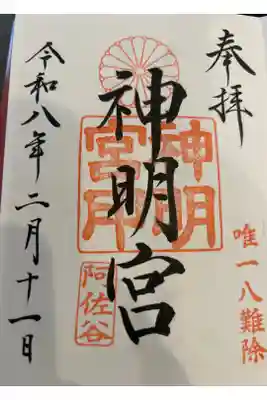 奉拝
唯一八難除
神明宮
神明
宮印
阿佐谷
令和八年二月十一日